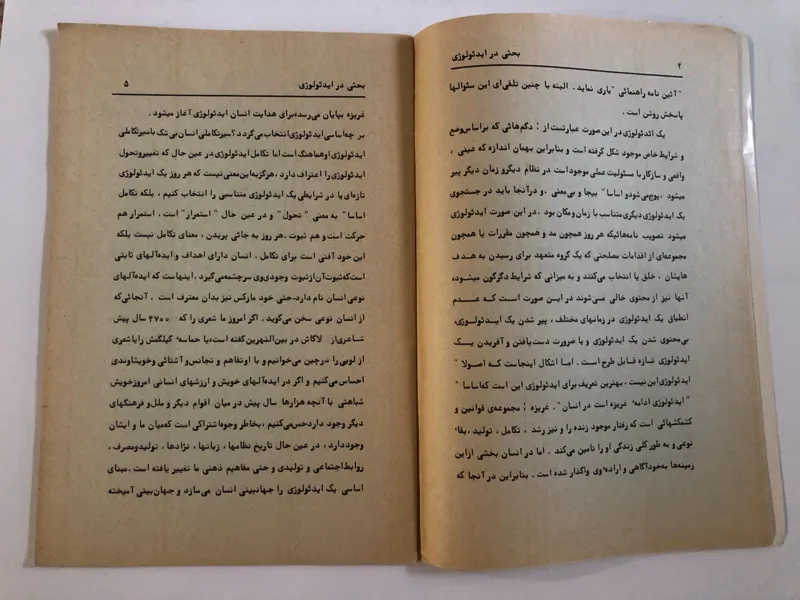 بحثی در ایدئولوژی
۴
"آئین نامه راهنمائی" یاری نماید. البته با چنین تلقی‌ای این سئوالها
پاسخش روشن است.
یک ائدئولوژی در این صورت عبارتست از: دگم‌هائی که براساس وضع
و شرایط خاص موجود شکل گرفته است و بنابراین بهمان اندازه که عینی،
واقعی و سازگار با مسئولیت عملی موجود است در نظام دیگر و زمان دیگر پیر
میشود، پوچ می‌شود و اساسا" بیجا و بی‌معنی، و در آنجا باید در جستجوی
یک ایدئولوژی دیگری متناسب با زمان و مکان بود. در این صورت ایدئولوژی
میشود تصویب نامه‌هائیکه هر روز همچون مد و همچون مقررات یا همچون
مجموعه‌ای از اقدامات مصلحتی که یک گروه متعهد برای رسیدن به هدف
هایشان، خلق یا انتخاب می‌کنند و به میزانی که شرایط دگرگون میشود،
آنها نیز از محتوی خالی می‌شوند در این صورت است که عدم
انطباق یک ایدئولوژی در زمانهای مختلف، پیر شدن یک ایدئولوژی،
بی‌محتوی شدن یک ایدئولوژی و یا ضرورت دست یافتن و آفریدن یک
ایدئولوژی تازه قابل طرح است. اما اشکال اینجاست که اصولا"
ایدئولوژی این نیست، بهترین تعریف برای ایدئولوژی این است که اساسا"
"ایدئولوژی ادامهٔ غریزه است در انسان". غریزه: مجموعه‌ی قوانین و
کششهائی است که رفتار موجود زنده را و نیز رشد، تکامل، تولید، بقاء
نوعی و به طور کلی زندگی او را تامین می‌کند. اما در انسان بخشی از این
زمینه‌ها به خودآگاهی و اراده‌ی وی واگذار شده است. بنابراین در آنجا که
بحثی در ایدئولوژی
۵
غریزه بپایان می‌رسد، برای هدایت انسان ایدئولوژی آغاز میشود.
بر چه اساسی ایدئولوژی انتخاب می‌گردد؟ سیر تکاملی انسان بی‌شک با سیر تکاملی
ایدئولوژی او هماهنگ است اما تکامل ایدئولوژی در عین حال که تغییر و تحول
ایدئولوژی را اعتراف دارد، هرگز به این معنی نیست که هر روز یک ایدئولوژی
تازه‌ای یا در شرایطی یک ایدئولوژی متناسبی را انتخاب کنیم، بلکه تکامل
اساسا" به معنی "تحول" و در عین حال "استمرار" است. استمرار هم
حرکت است و هم ثبوت. هر روز به جائی پریدن، معنای تکامل نیست بلکه
این خود آفتی است برای تکامل. انسان دارای اهداف و ایده‌آلهای ثابتی
است که ثبوت آن از ثبوت وجودی وی سرچشمه می‌گیرد. اینهاست که ایده‌آلهای
نوعی انسان نام دارد، حتی خود مارکس نیز بدان معترف است. آنجائی که
از انسان نوعی سخن می‌گوید. اگر امروز ما شعری را که ۴۷۰۰ سال پیش
شاعری از لاگاش در بین‌النهرین گفته است، یا حماسهٔ گیلگمش را یا شعری
از لوپی را در چین می‌خوانیم و با او تفاهم و تجانس و آشنائی و خویشاوندی
احساس می‌کنیم و اگر در ایده‌آلهای خویش و ارزشهای انسانی امروز خویش
شباهتی با آنچه هزارها سال پیش در میان اقوام دیگر و ملل و فرهنگهای
دیگر وجود دارد حس می‌کنیم، بخاطر وجوه اشتراکی است که میان ما و ایشان
وجود دارد، در عین حال تاریخ نظامها، زبانها، نژادها، تولید و مصرف،
روابط اجتماعی و تولیدی و حتی مفاهیم ذهنی ما تغییر یافته است. مبنای
اساسی یک ایدئولوژی را جهانبینی انسان می‌سازد و جهان‌بینی آمیخته